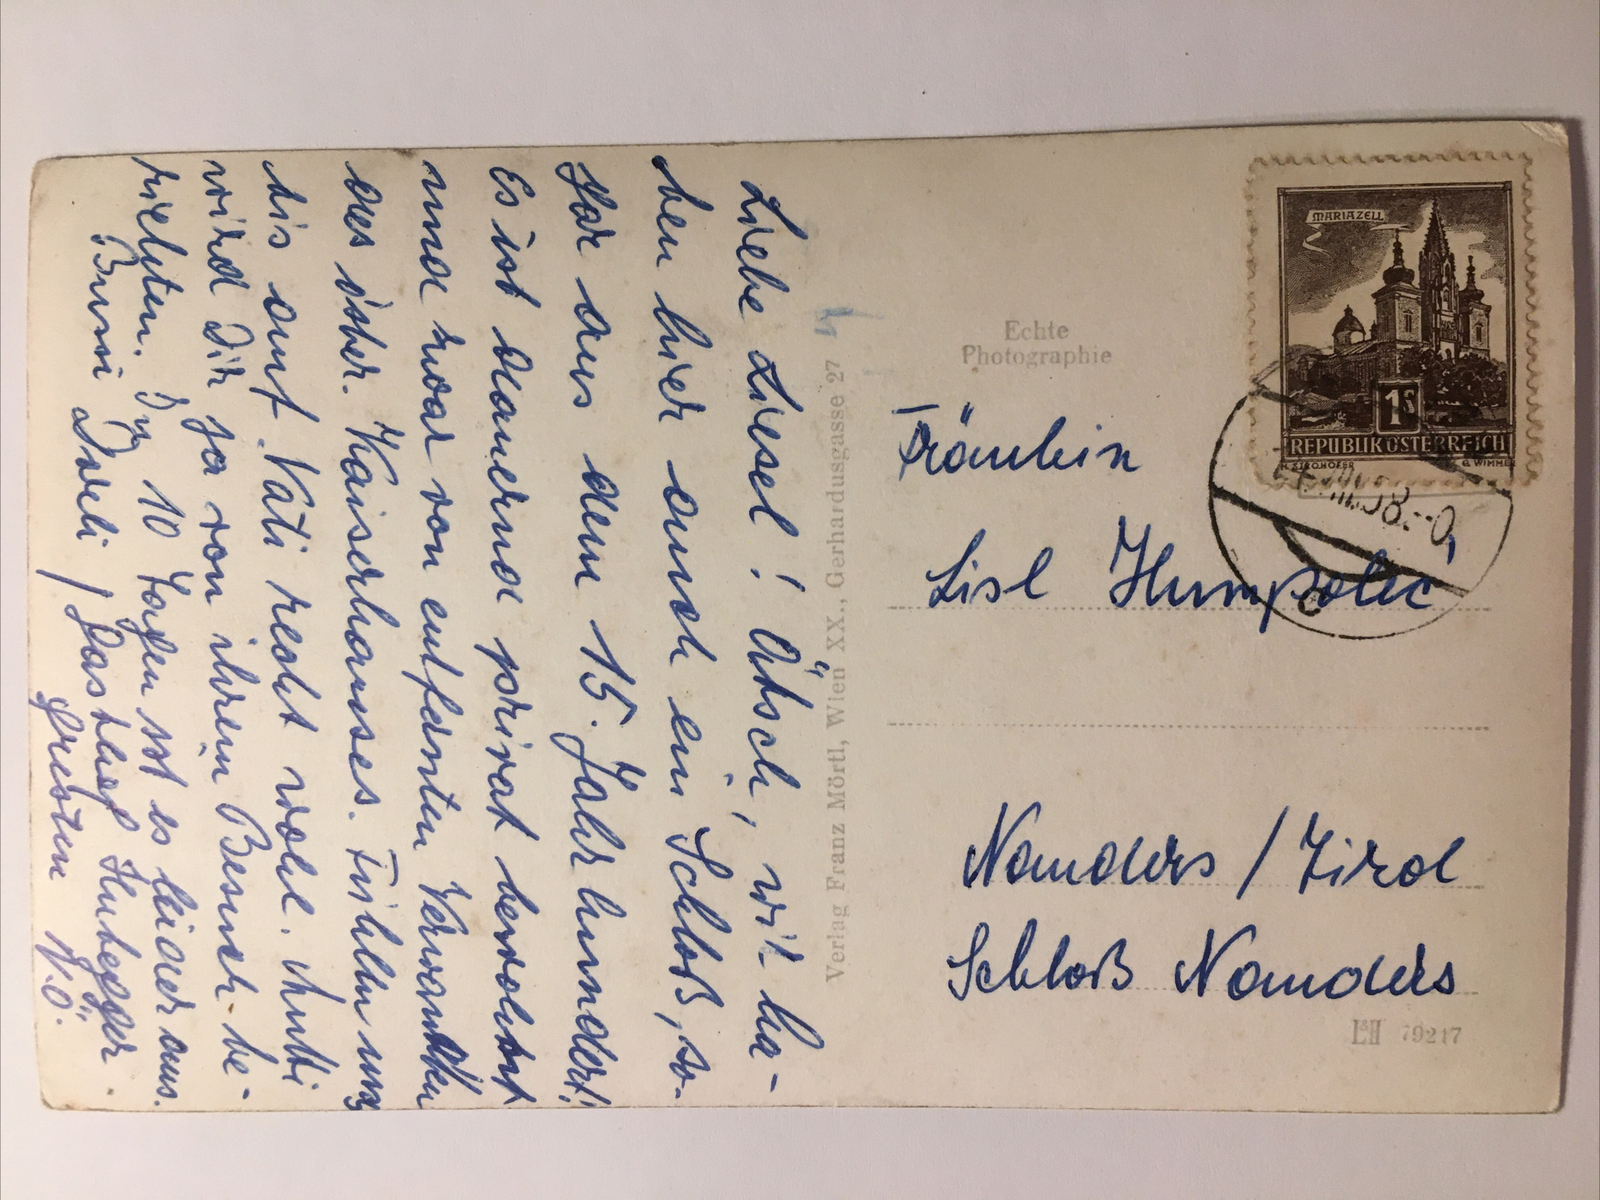 Liebe Liesel! Ätsch, wir ha-
ben hier auch ein Schloß, so-
gar aus dem 15. Jahrhundert!
Es ist dauernd privat bewohnt
und zwar von entfernten Verwandten
des österr. Kaiserhauses. Fühlen uns
bis auf Vati recht wohl. Mutti
wird Dir ja von ihrem Besuch be-
richten. In 10 Tagen ist es leider aus.
Bussi Dorli / Gasthof Hubegger.
Gresten N.Ö.
Verlag Franz Mörtl, Wien XX., Gerhardusgasse 27
Echte
Photographie
MARIAZELL
1S
REPUBLIK ÖSTERREICH
H. STROHOFER G. WIMMER
58
Fräulein
Lisl Humpolec
Nauders / Tirol
Schloß Nauders
79217